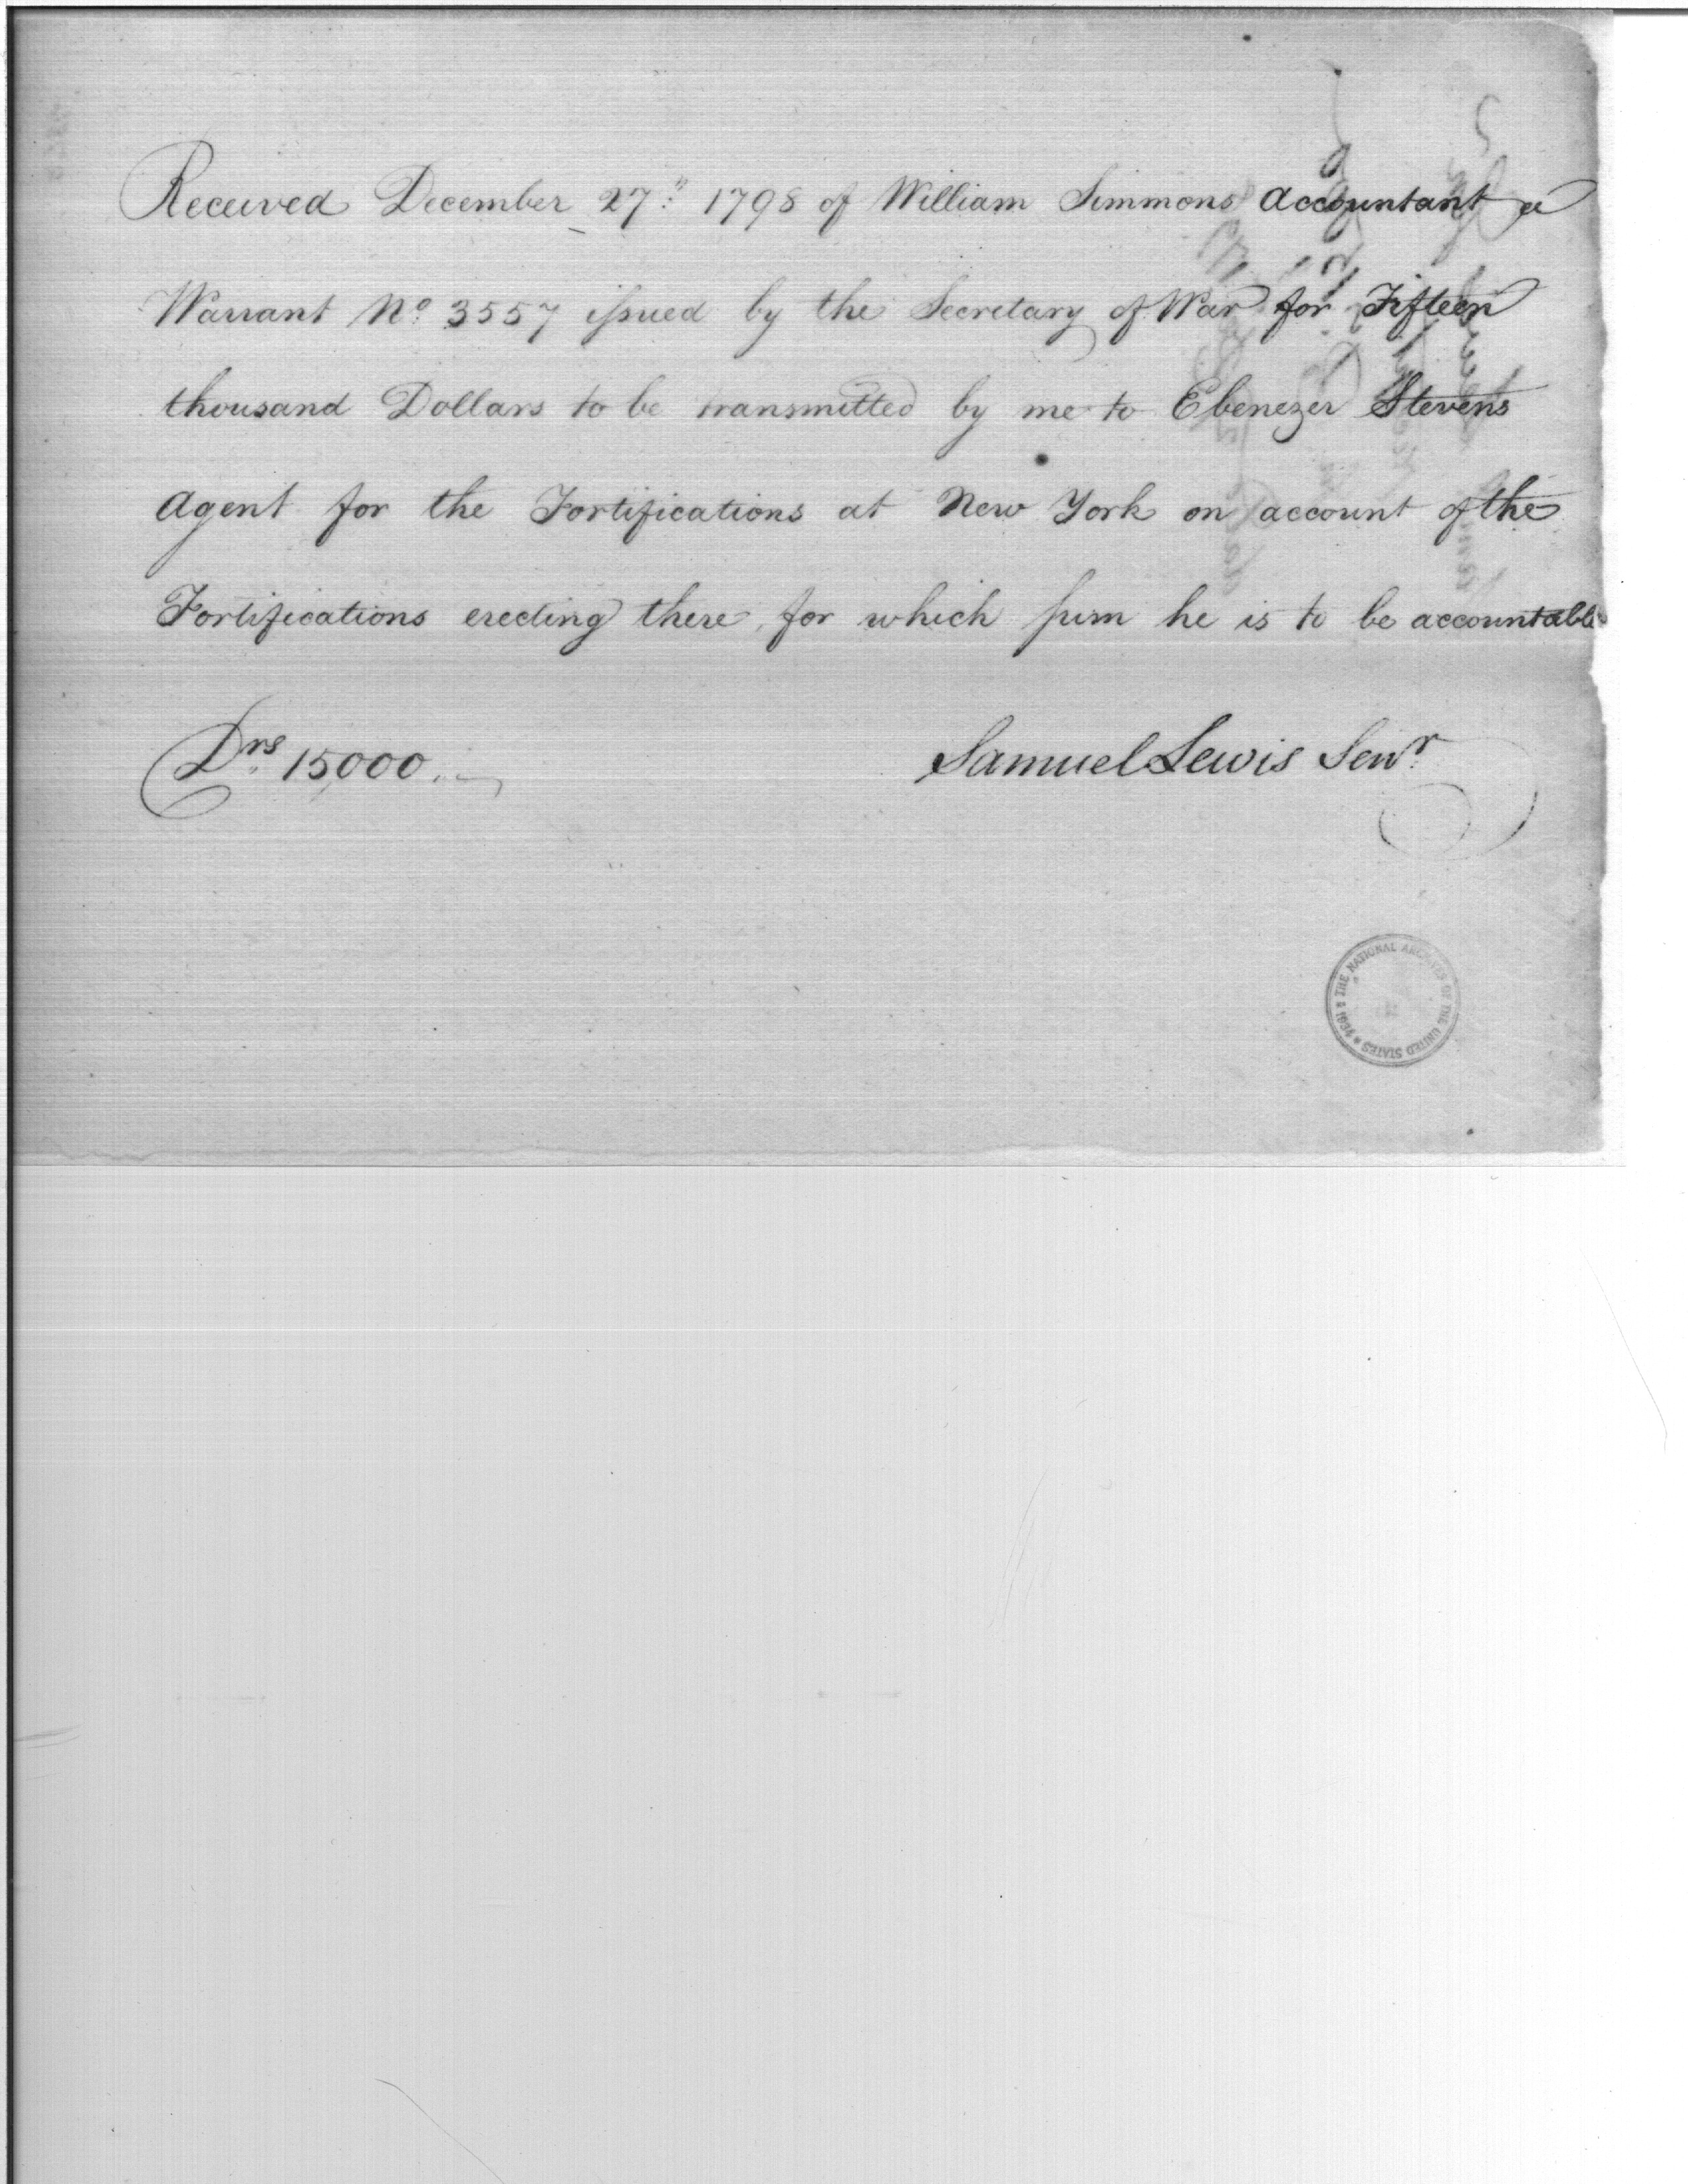 Received December 27." 1798 of William Simmons Accountant a
Warrant No. 3557 issued by the Secretary of War for Fifteen
thousand Dollars to be transmitted by me to Ebenezer Stevens
Agent for the Fortifications at New York on account of the
Fortifications erecting there, for which sum he is to be accountable
Drs. 15,000..
Samuel Lewis Senr.
THE NATIONAL ARCHIVES OF THE UNITED STATES * 1934 *